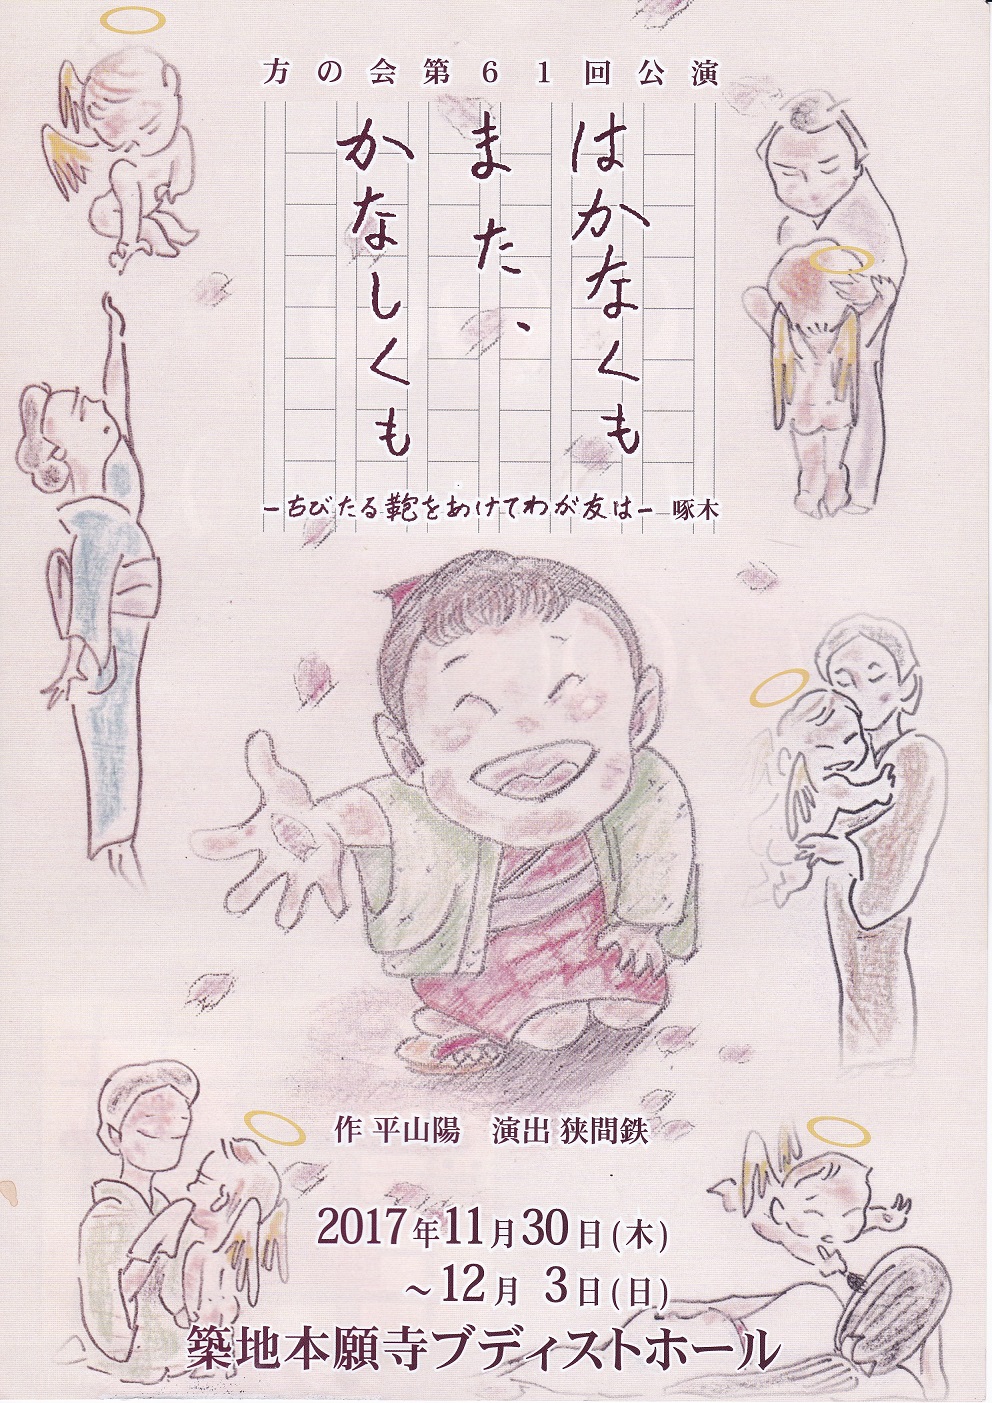 方の会第６１回公演
はかなくも
また、
かなしくも
－ちびたる鞄をあけてわが友は－ 啄木
作 平山陽　演出 狭間鉄
2017年11月30日(木)
～12月 3日(日)
築地本願寺ブディストホール